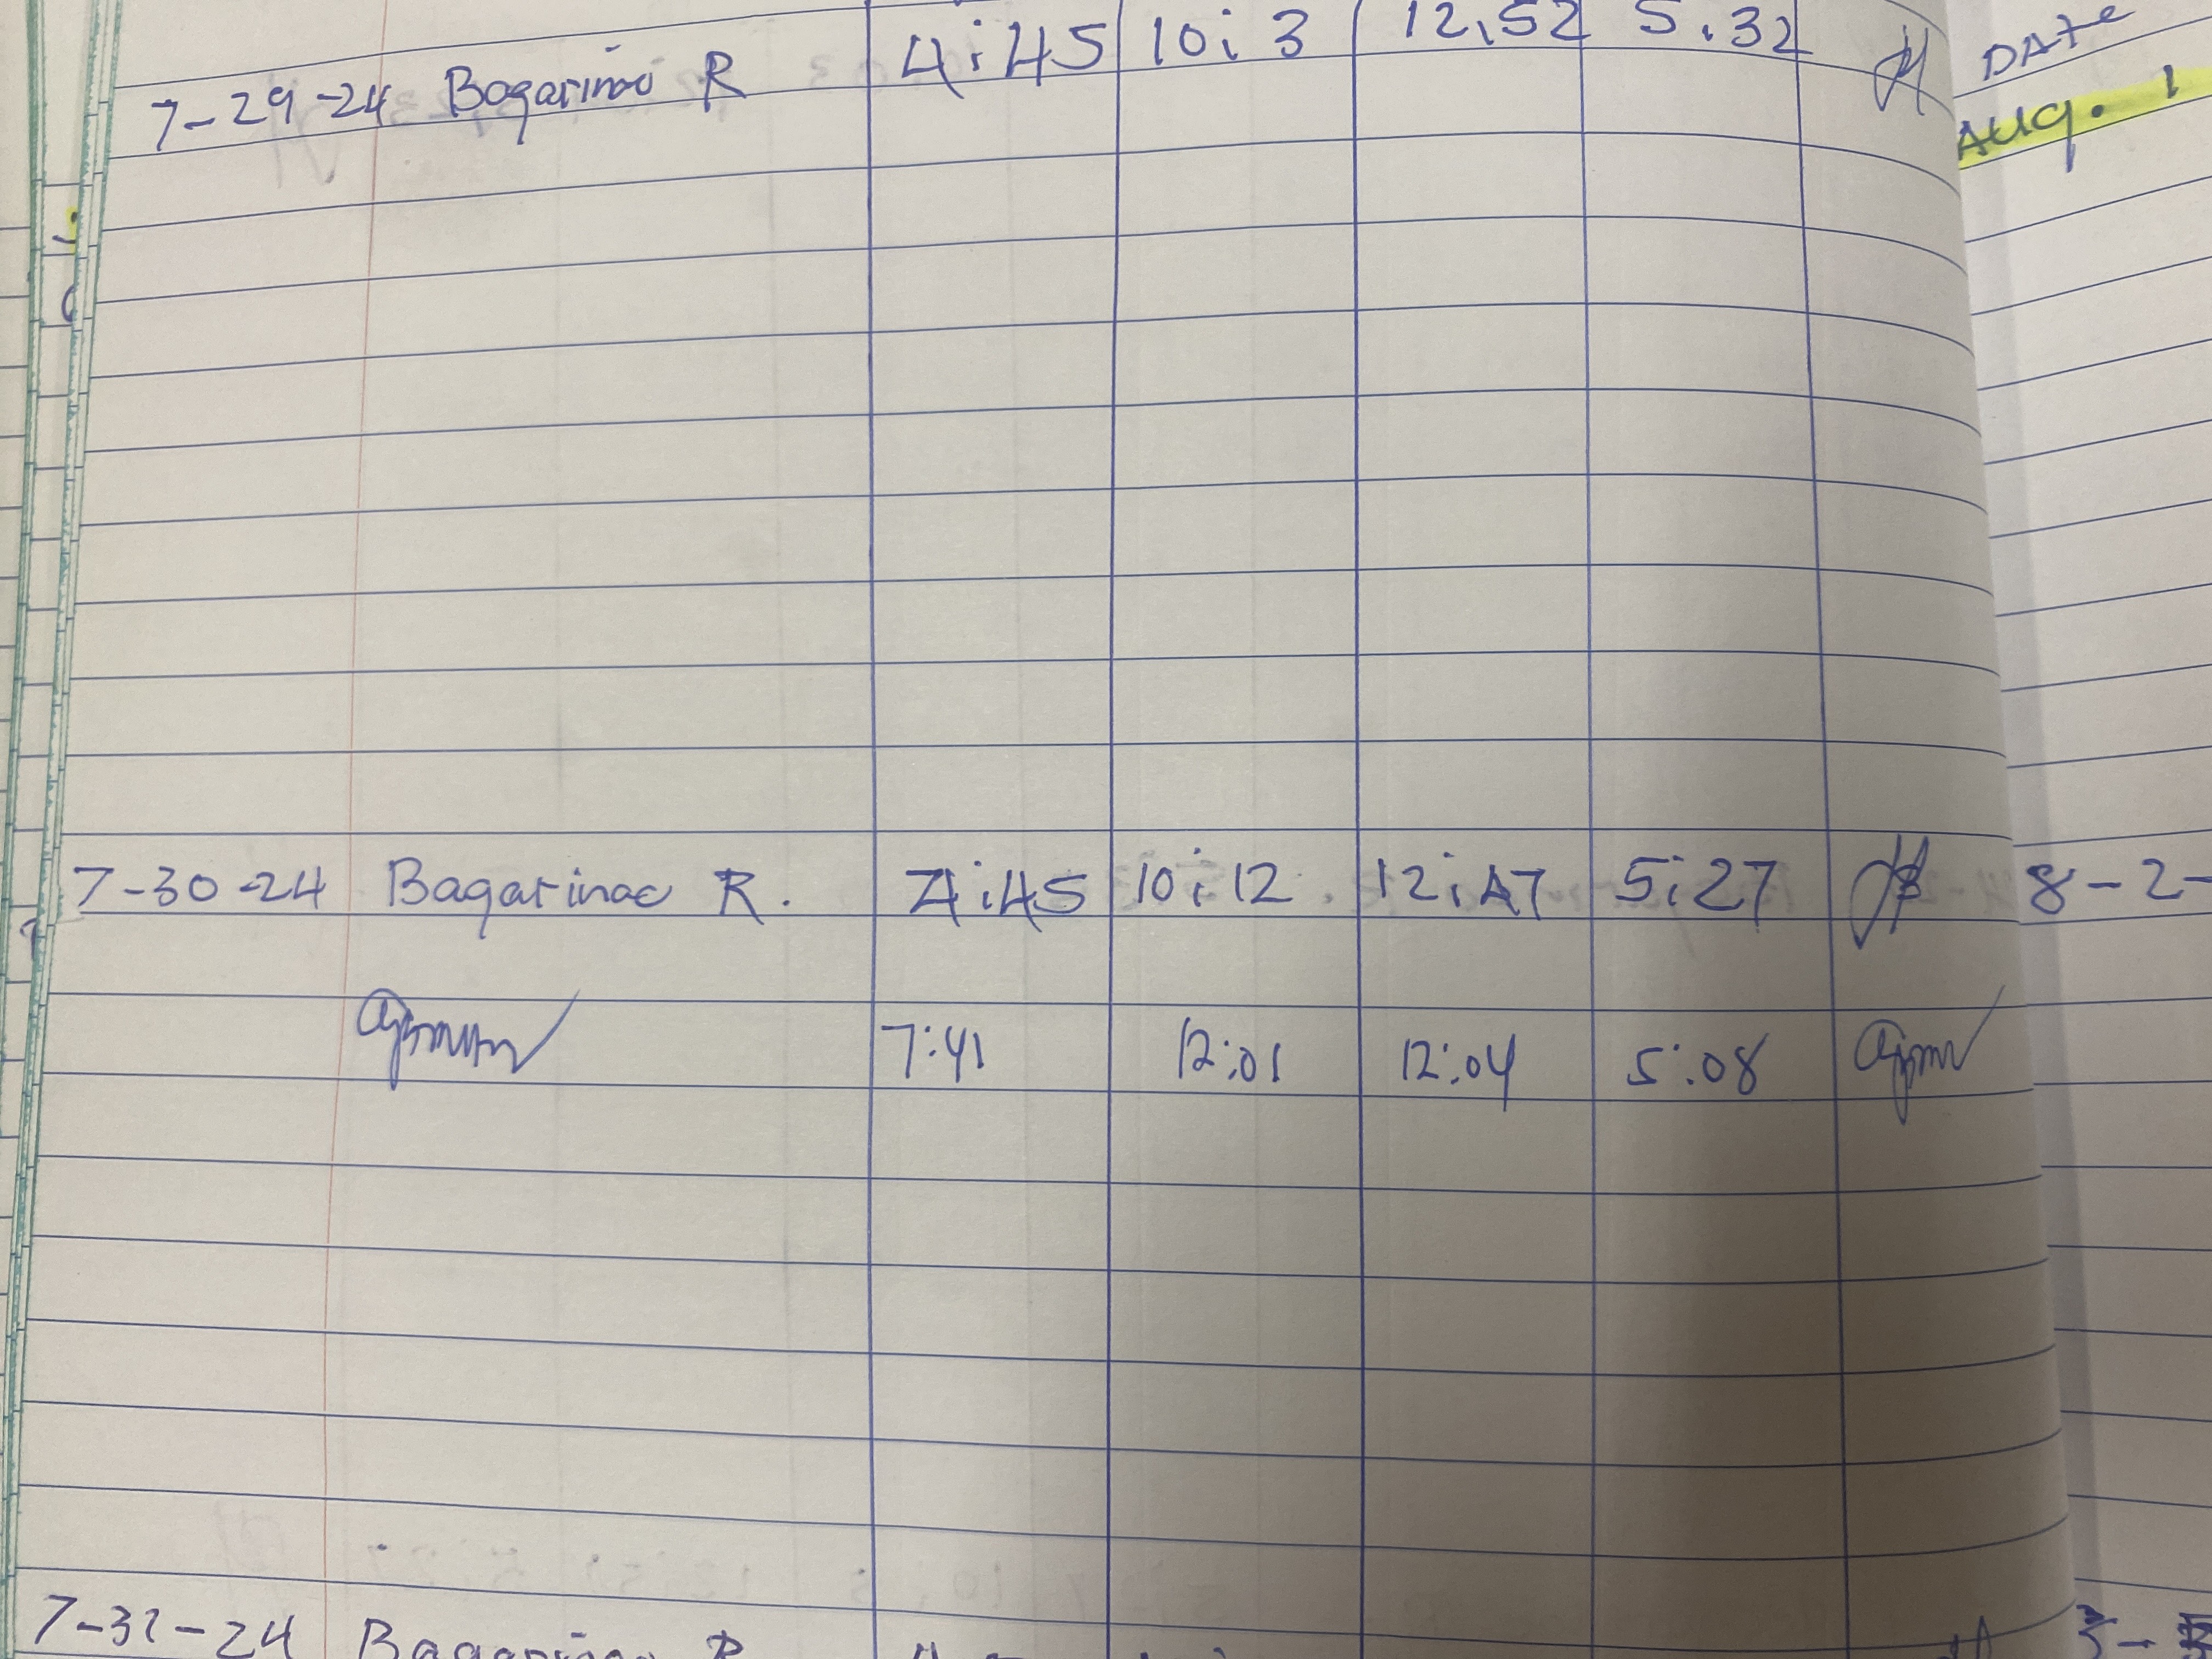 7-29-24 Bagarinao R 4:45 10:3 12:52 5:32
7-30-24 Bagarinao R. 4:45 10:12 12:47 5:27
7:41 12:01 12:04 5:08
7-31-24 Bagarinao R
DATE
AUG. 1
8-2-